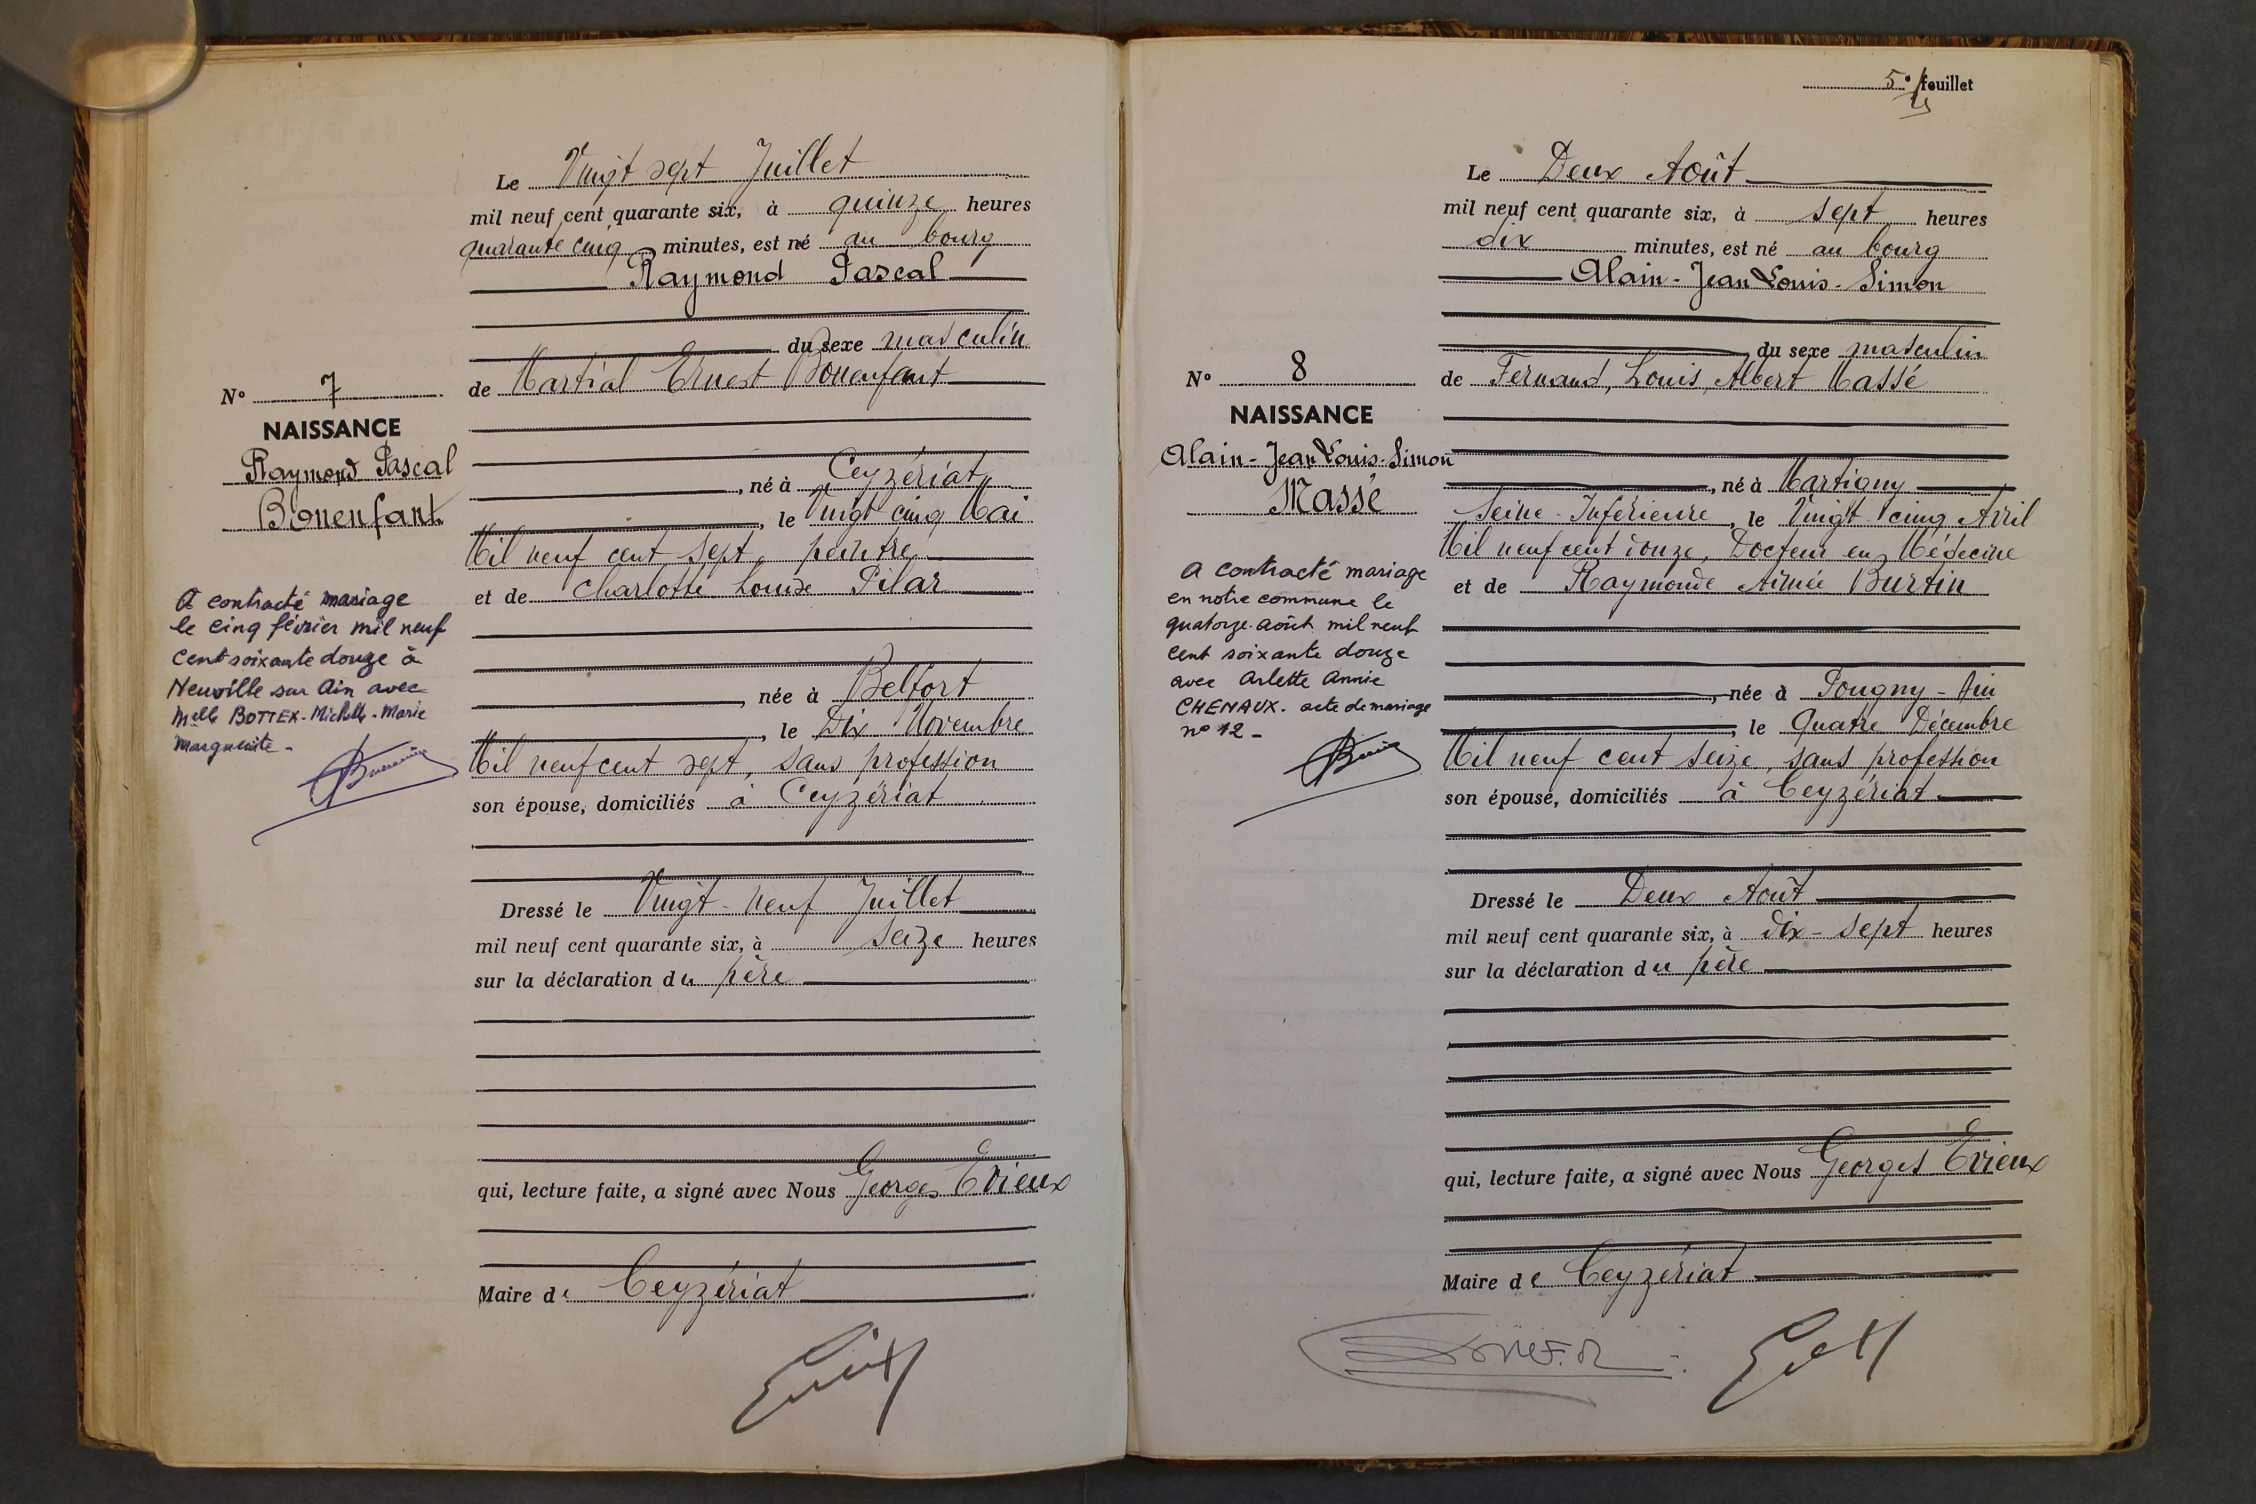 Le Vingt sept Juillet
mil neuf cent quarante six, à quinze heures
quarante cinq minutes, est né au bourg
Raymond Pascal
du sexe masculin
de Martial Ernest Bonenfant
N° 7
NAISSANCE
Raymond Pascal
Bonenfant
, né à Ceyzériat
, le Vingt cinq Mai
Mil neuf cent sept, peintre
et de Charlotte Louise Pilar
A contracté mariage
le cinq février mil neuf
cent soixante douze à
Neuville sur Ain avec
Melle BOTTEX - Michelle - Marie
Marguerite -
, née à Belfort
, le Dix Novembre
Mil neuf cent sept, sans profession
son épouse, domiciliés à Ceyzériat
Dressé le Vingt-neuf Juillet
mil neuf cent quarante six, à seize heures
sur la déclaration du père
qui, lecture faite, a signé avec Nous Georges Evieux
Maire de Ceyzériat
5e feuillet
Le Deux Août
mil neuf cent quarante six, à sept heures
dix minutes, est né au bourg
Alain - Jean Louis - Simon
du sexe masculin
de Fernand, Louis, Albert Massé
N° 8
NAISSANCE
Alain - Jean Louis - Simon
Massé
, né à Martigny
Seine-Inférieure, le Vingt cinq Avril
Mil neuf cent douze, Docteur en Médecine
et de Raymonde Aimée Burtin
A contracté mariage
en notre commune le
quatorze août mil neuf
cent soixante douze
avec Arlette Annie
CHENAUX. acte de mariage
n° 12 -
, née à Pougny - Ain
, le Quatre Décembre
Mil neuf cent seize, sans profession
son épouse, domiciliés à Ceyzériat
Dressé le Deux Août
mil neuf cent quarante six, à dix-sept heures
sur la déclaration du père
qui, lecture faite, a signé avec Nous Georges Evieux
Maire de Ceyzériat